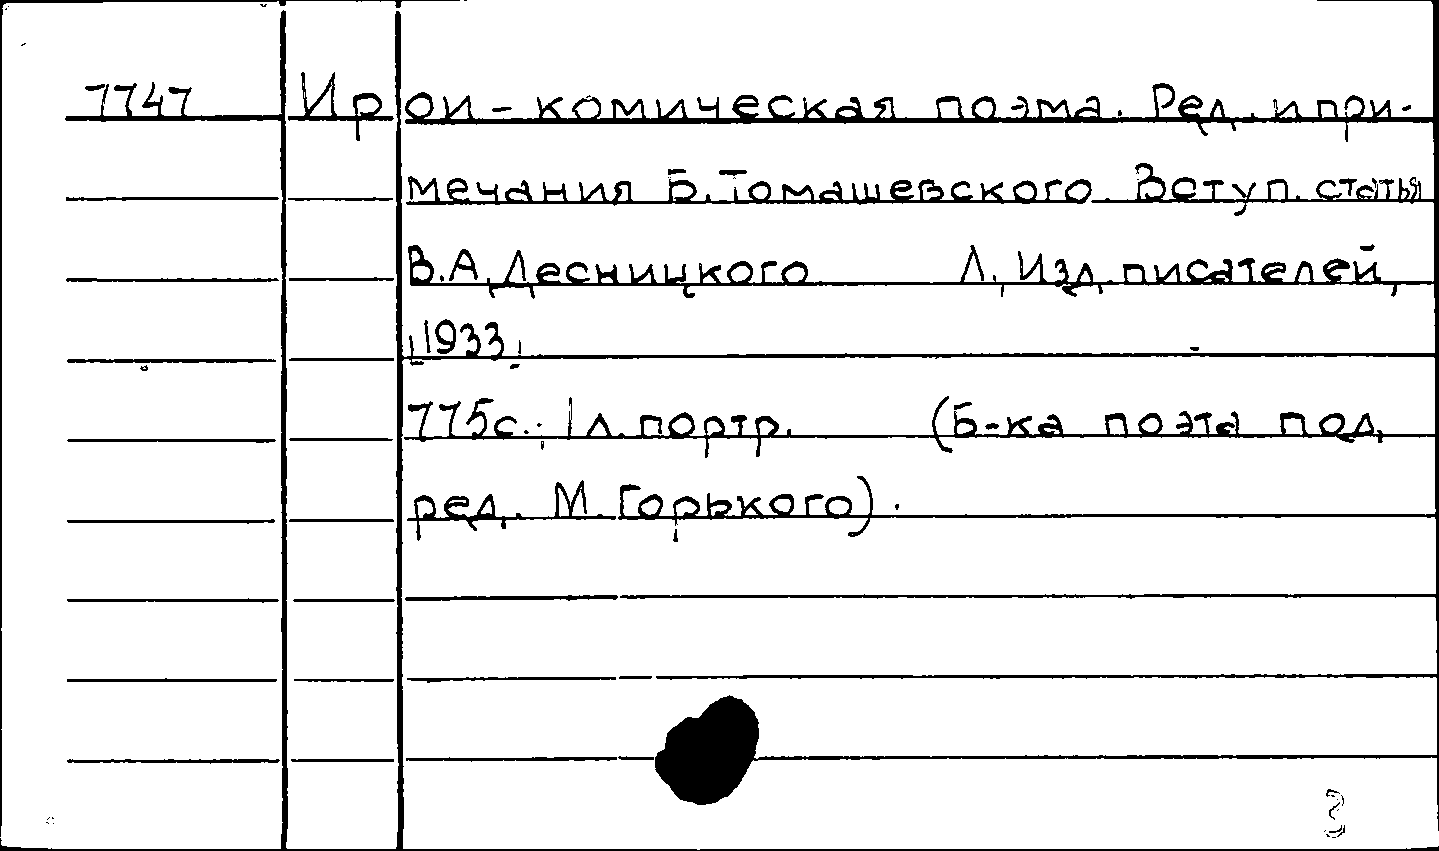 7747 Ирои-комическая поэма. Ред. и при-
мечания Б.Томашевского. Вступ. статья
В.А.Десницкого Л., Изд. писателей,
[1933]
775с.; 1 л. портр. (Б-ка поэта под
ред. М. Горького).